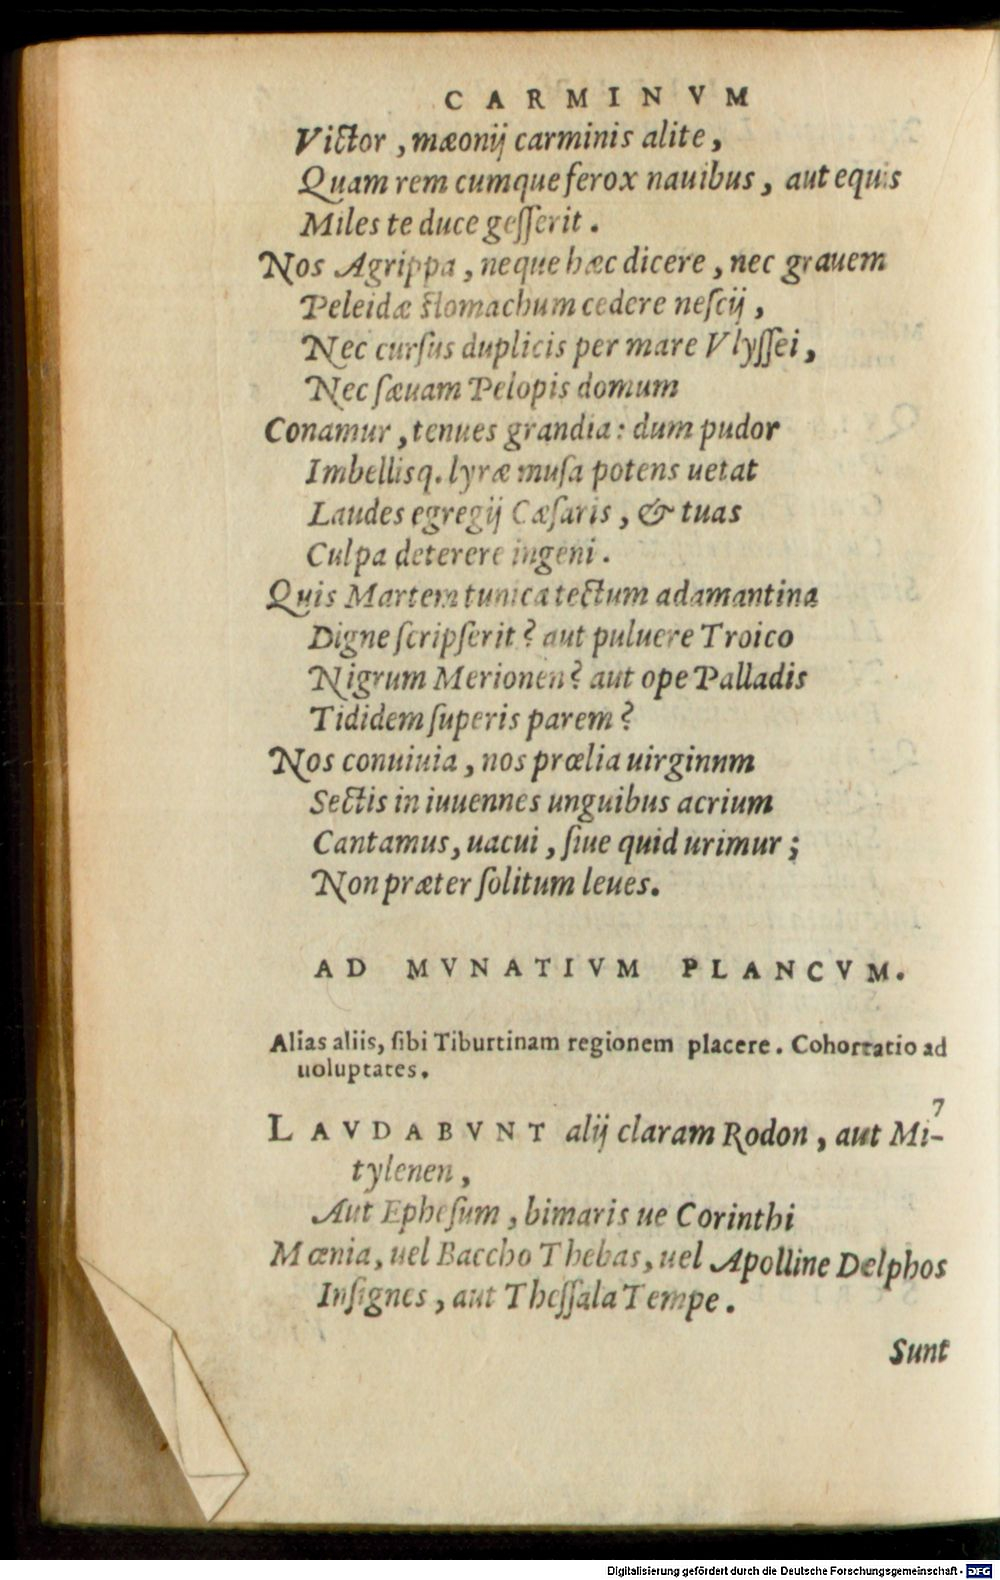 CARMINVM
Victor, mæonij carminis alite,
Quam rem cumque ferox nauibus, aut equis
Miles te duce geſſerit.
Nos Agrippa, neque hæc dicere, nec grauem
Peleidæ stomachum cedere neſcij,
Nec curſus duplicis per mare Vlyſſei,
Nec ſæuam Pelopis domum
Conamur, tenues grandia: dum pudor
Imbellisq. lyræ muſa potens uetat
Laudes egregij Cæſaris, & tuas
Culpa deterere ingeni.
Quis Martem tunica tectum adamantina
Digne ſcripſerit? aut puluere Troico
Nigrum Merionen? aut ope Palladis
Tididem ſuperis parem?
Nos conuiuia, nos prœlia uirginum
Sectis in iuuennes unguibus acrium
Cantamus, uacui, ſiue quid urimur;
Non præter ſolitum leues.
AD MVNATIVM PLANCVM.
Alias aliis, ſibi Tiburtinam regionem placere. Cohortatio ad
uoluptates.
7
LAVDABVNT alij claram Rodon, aut Mi-
tylenen,
Aut Epheſum, bimaris ue Corinthi
Mœnia, uel Baccho Thebas, uel Apolline Delphos
Inſignes, aut Theſſala Tempe.
Sunt
Digitalisierung gefördert durch die Deutsche Forschungsgemeinschaft - DFG